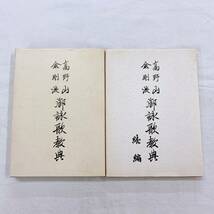 高野山
金剛流
御詠歌教典
高野山
金剛流
御詠歌教典
続編